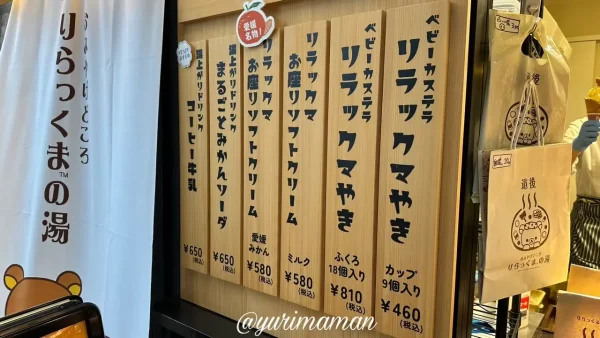 おみやげどころ
りらっくまの湯
TM
愛媛
名物!
ベビーカステラ
リラックマやき
カップ
9個入り
¥460
(税込)
ベビーカステラ
リラックマやき
ふくろ
18個入り
¥810
(税込)
リラックマ
お座リソフトクリーム
ミルク
¥580
(税込)
リラックマ
お座リソフトクリーム
愛媛
みかん
¥580
(税込)
湯上がりドリンク
まるごとみかんソーダ
¥650
(税込)
湯上がりドリンク
コーヒー牛乳
¥650
(税込)
道後
りらっくまの湯
@yurimaman